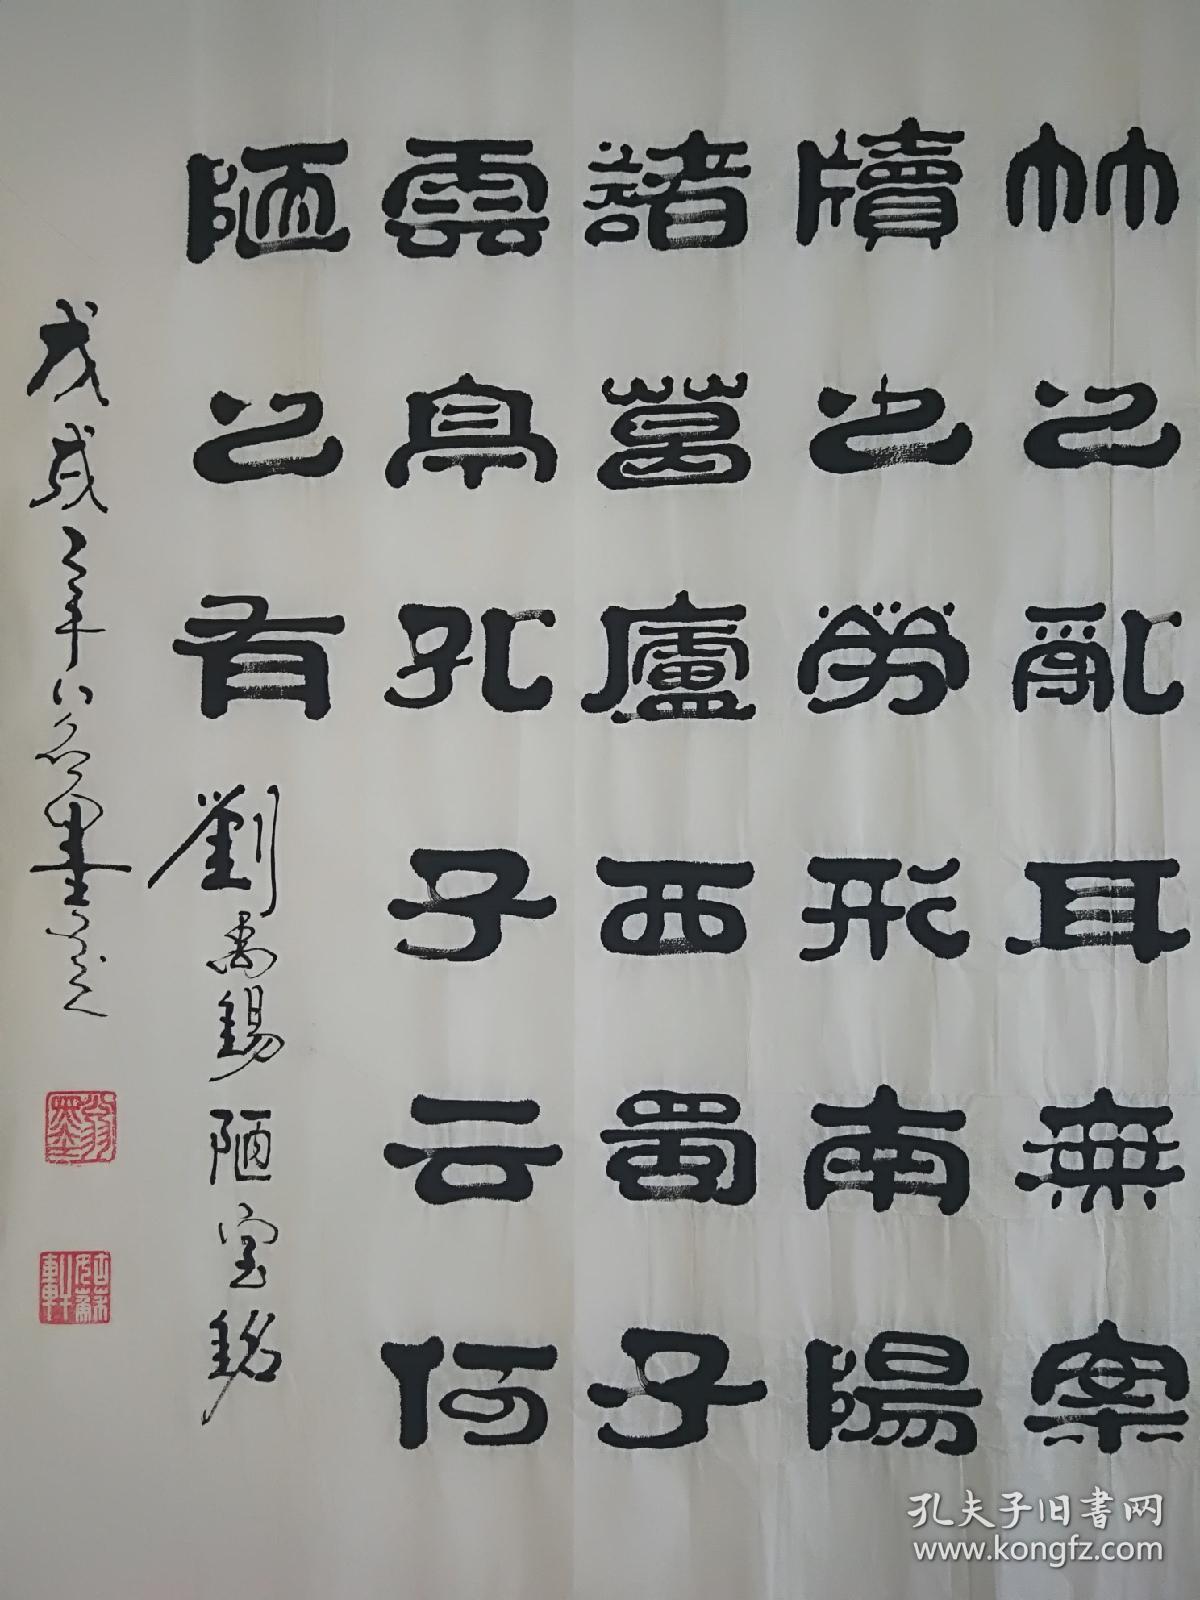 竹之亂耳無案
牘之勞形南陽
諸葛廬西蜀子
雲亭孔子云何
陋之有
劉禹錫陋室銘
戊戌之年
孔夫子旧书网
www.kongfz.com